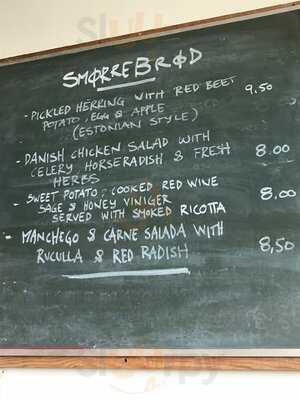 SMØRREBRØD
- PICKLED HERRING WITH RED BEET 9.50
POTATO, EGG & APPLE
(ESTONIAN STYLE)
- DANISH CHICKEN SALAD WITH
CELERY, HORSERADISH & FRESH 8.00
HERBS
- SWEET POTATO, COOKED RED WINE
SAGE & HONEY VINIGER 8,00
SERVED WITH SMOKED RICOTTA
- MANCHEGO & CARNE SALADA WITH
RUCULLA & RED RADISH 8,50